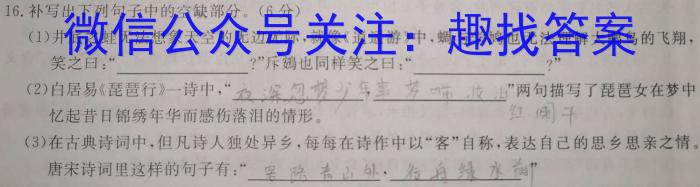 16.补写出下列句子中的空缺部分。(6分)
微信公众号关注：趣找答案
(1)井 蛙无法想象天空的无边无际,就像《逍遥游》中,蜩 鸠也无法理解大鹏鸟的飞翔,
笑之曰:“ ?”斥鴳也同样笑之曰:“ ?”
(2)白居易《琵琶行》一诗中,“夜深忽梦少年事 梦啼妆泪 红阑干”两句描写了琵琶女在梦中
忆起昔日锦绣年华而感伤落泪的情形。
(3)在古典诗词中,但凡诗人独处异乡,每每在诗作中以“客”自称,表达自己的思乡思亲之情。
唐宋诗词里这样的句子有:“客路青山外,行舟绿水前”